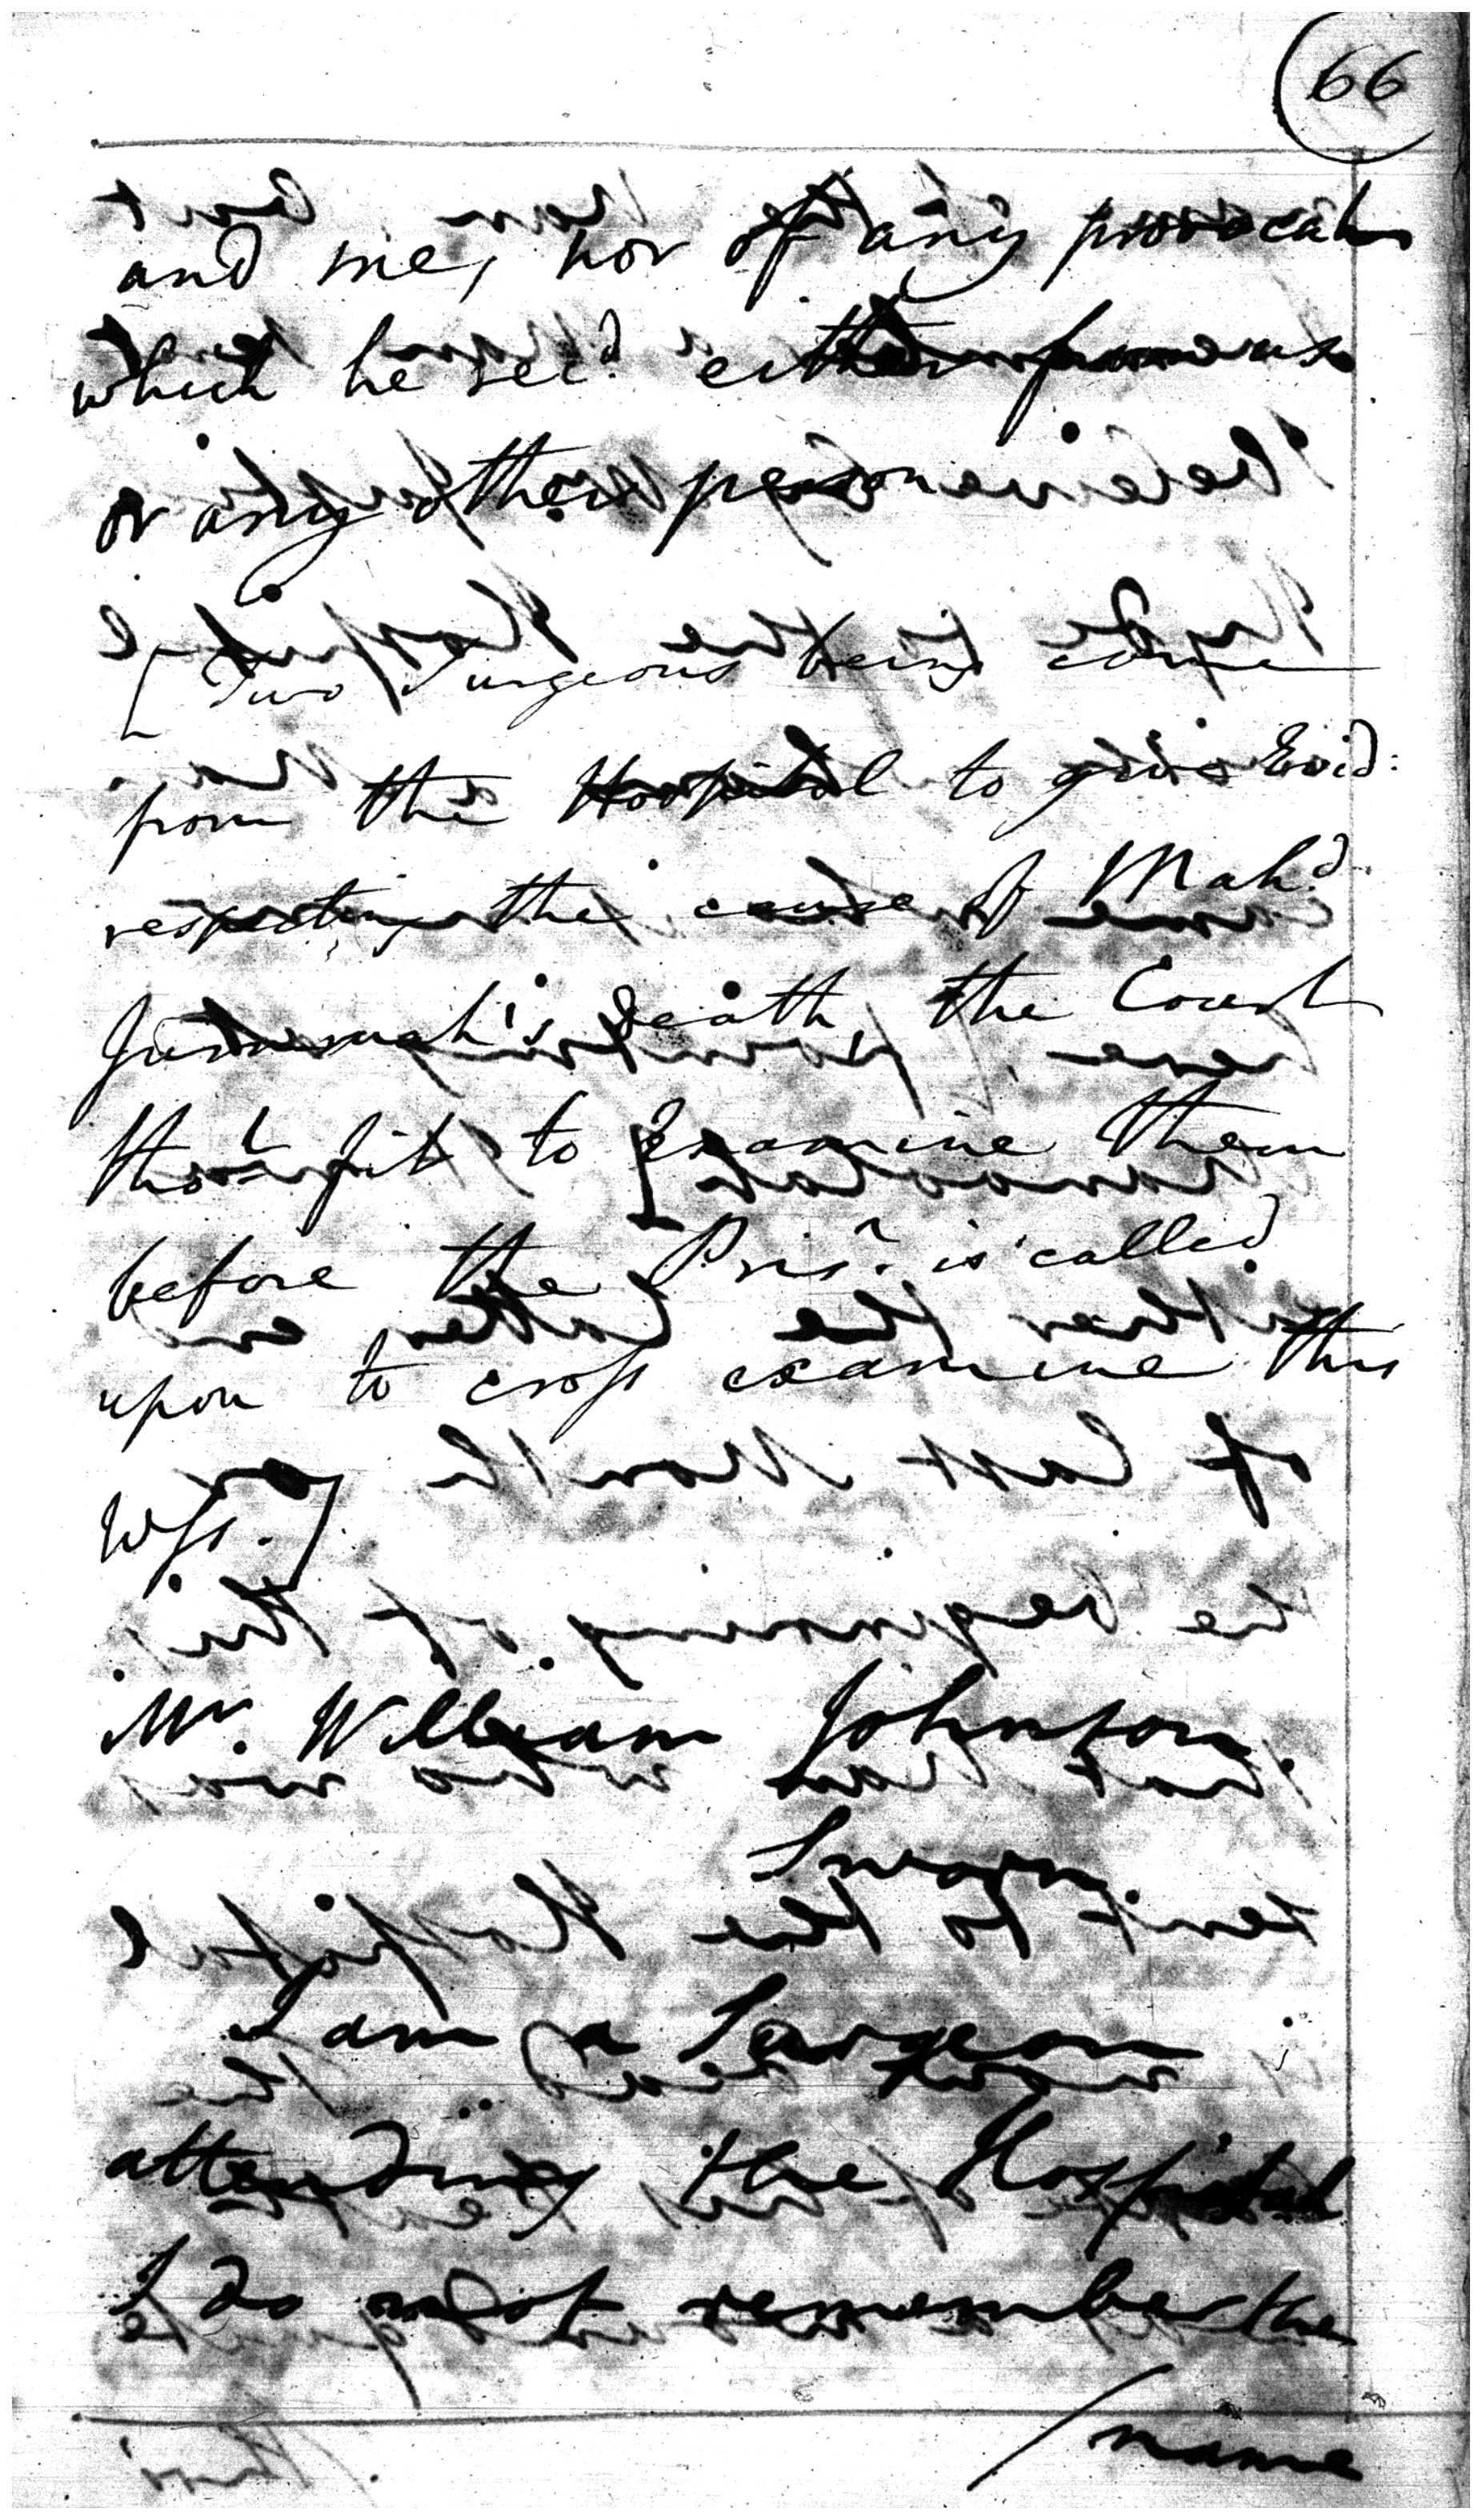 66
and me, nor of any provocatn
which he recd. either from us
or any other person
[Two Surgeons being come
from the Hospital to give Evid:
respecting the cause of Mahd.
death, the Court
thot. fit to Examine them
before the Prisr. is called
upon to cross examine this
Wss.]
Mr. William Johnson.
Sworn.
I am a Surgeon
attending the Hospital
I do not remember the
/name